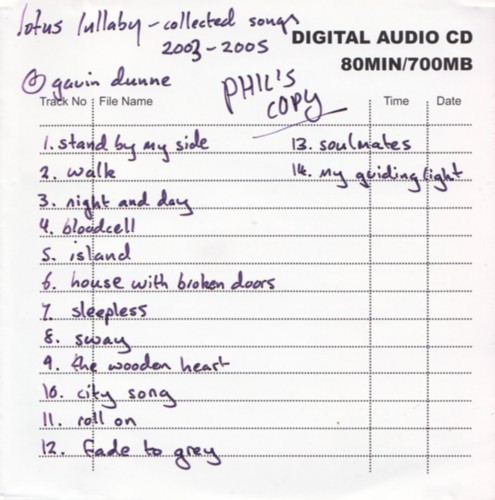 lotus lullaby - collected songs
2003 - 2005
DIGITAL AUDIO CD
80MIN/700MB
gavin dunne
PHIL'S
COPY
Track No File Name Time Date
1. stand by my side
2. walk
3. night and day
4. bloodcell
5. island
6. house with broken doors
7. sleepless
8. sway
9. the wooden heart
10. city song
11. roll on
12. fade to grey
13. soulmates
14. my guiding light